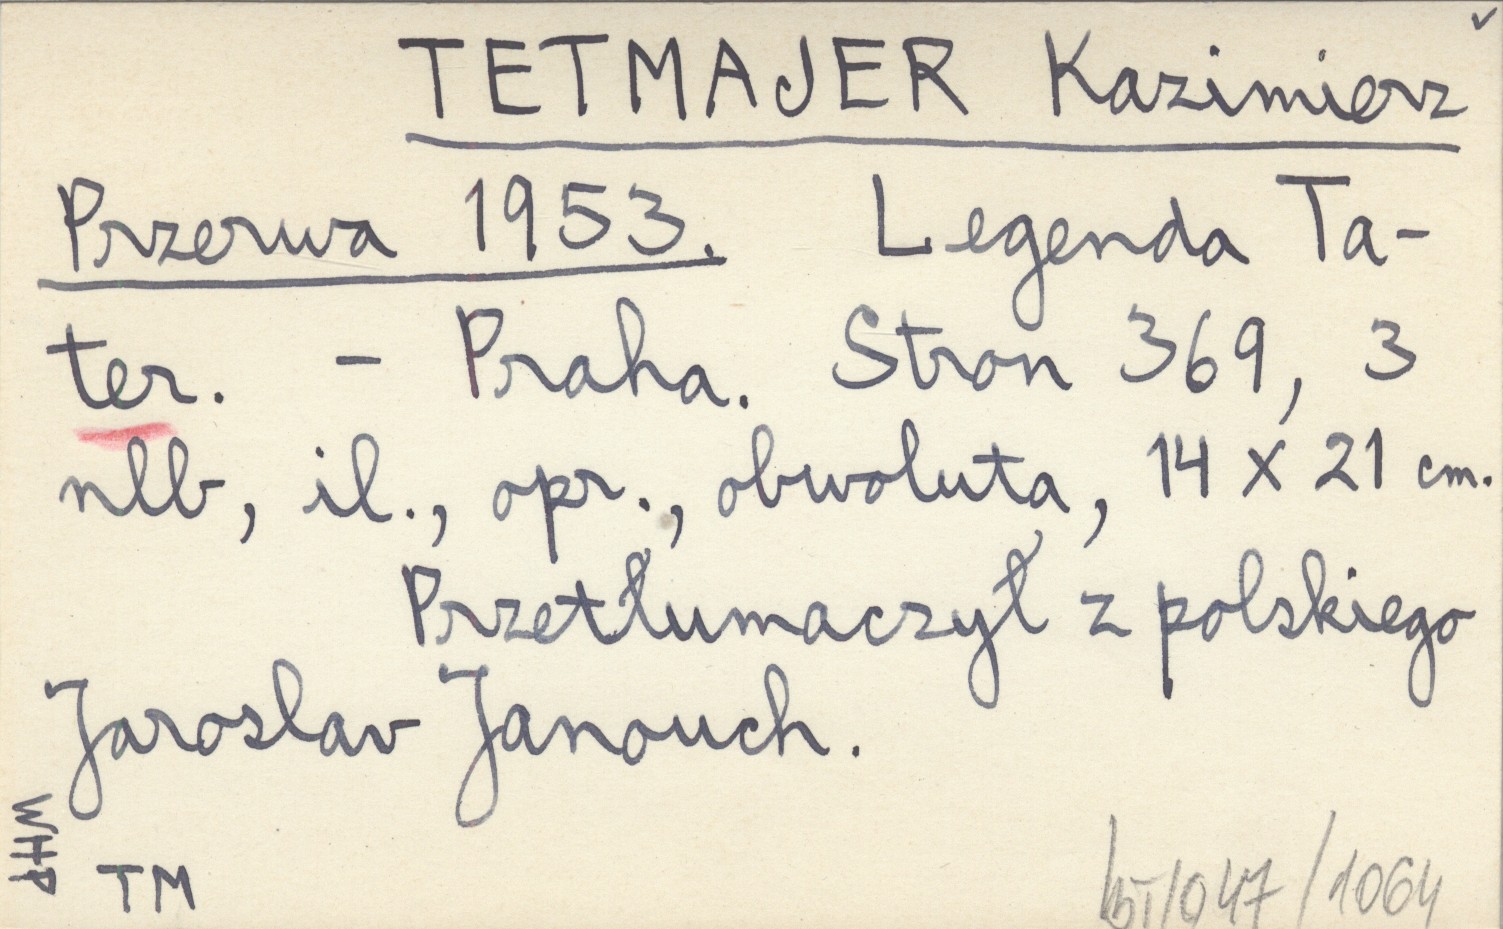 TETMAJER Kazimierz
Przerwa 1953. Legenda Ta-
ter. - Praha. Stron 369, 3
nlb, il., opr., obwoluta, 14 x 21 cm.
Przetłumaczył z polskiego
Jaroslav Janouch.
WHP
TM
/047/1064